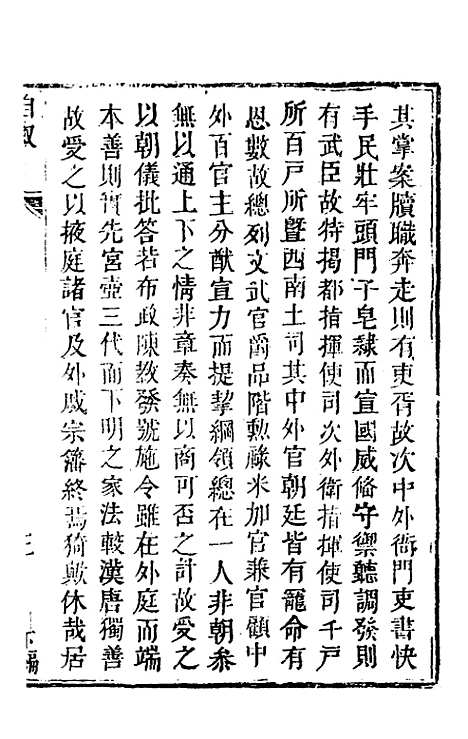 其掌案牘職奔走則有吏胥故次中外衙門吏書快
手民壯牢頭門子皂隸而宣國威俻守禦聽調發則
有武臣故特揭都指揮使司次外衛指揮使司千戶
所百戶所暨西南土司其中外官朝廷皆有寵命有
恩數故總列文武官爵品階勲祿米加官兼官顧中
外百官主分猷宣力而提挈綱領總在一人非朝叅
無以通上下之情非章奏無以商可否之計故受之
以朝儀批答若布政陳教發號施令雖在外庭而端
本善則實先宮壼三代而下明之家法較漢唐獨善
故愛之以掖庭諸官及外戚宗籓終焉猗歟休哉居
自敘
三